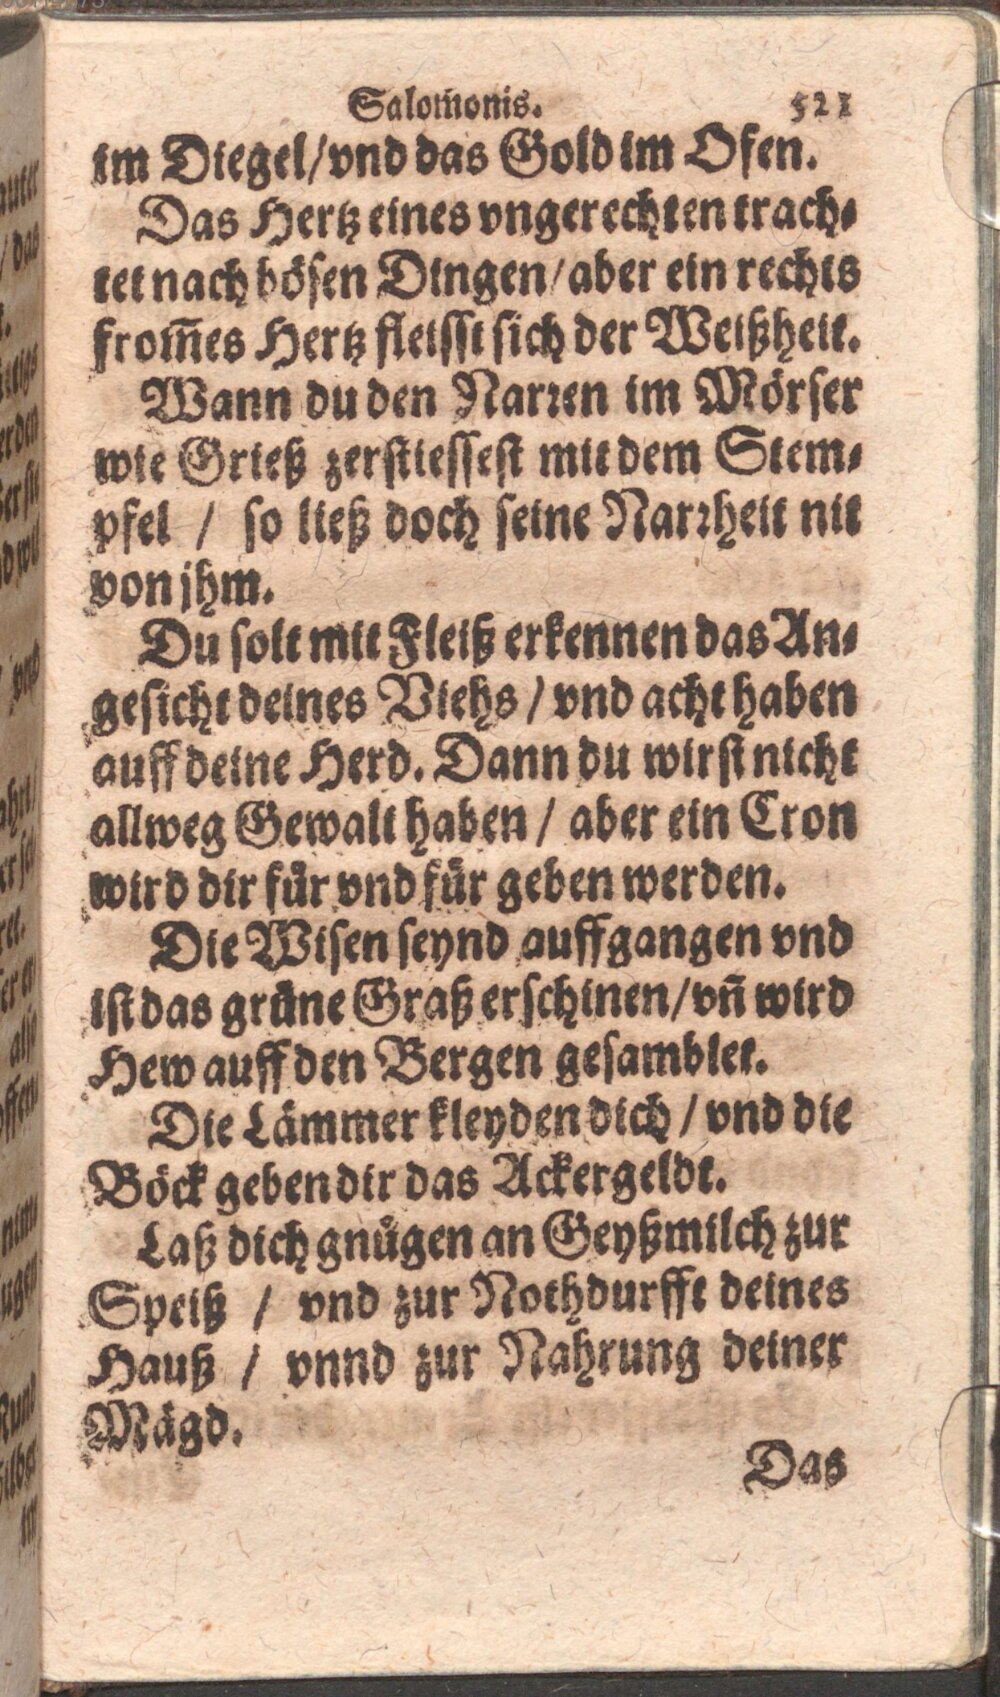 Salom̃onis. 521
im Diegel/vnd das Gold im Ofen.
Das Hertz eines vngerechten trach-
tet nach bösen Dingen/aber ein rechts
from̃es Hertz fleisst sich der Weißheit.
Wann du den Narren im Mörser
wie Grieß zerstiessest mit dem Stem-
pfel / so ließ doch seine Narrheit nit
von jhm.
Du solt mit Fleiß erkennen das An-
gesicht deines Viehs / vnd acht haben
auff deine Herd. Dann du wirst nicht
allweg Gewalt haben / aber ein Cron
wird dir für vnd für geben werden.
Die Wisen seynd auffgangen vnd
ist das grüne Graß erschinen/vn̄ wird
Hew auff den Bergen gesamblet.
Die Lämmer kleyden dich / vnd die
Böck geben dir das Ackergeldt.
Laß dich gnügen an Geyßmilch zur
Speiß / vnd zur Nothdurfft deines
Hauß / vnnd zur Nahrung deiner
Mägd.
Das